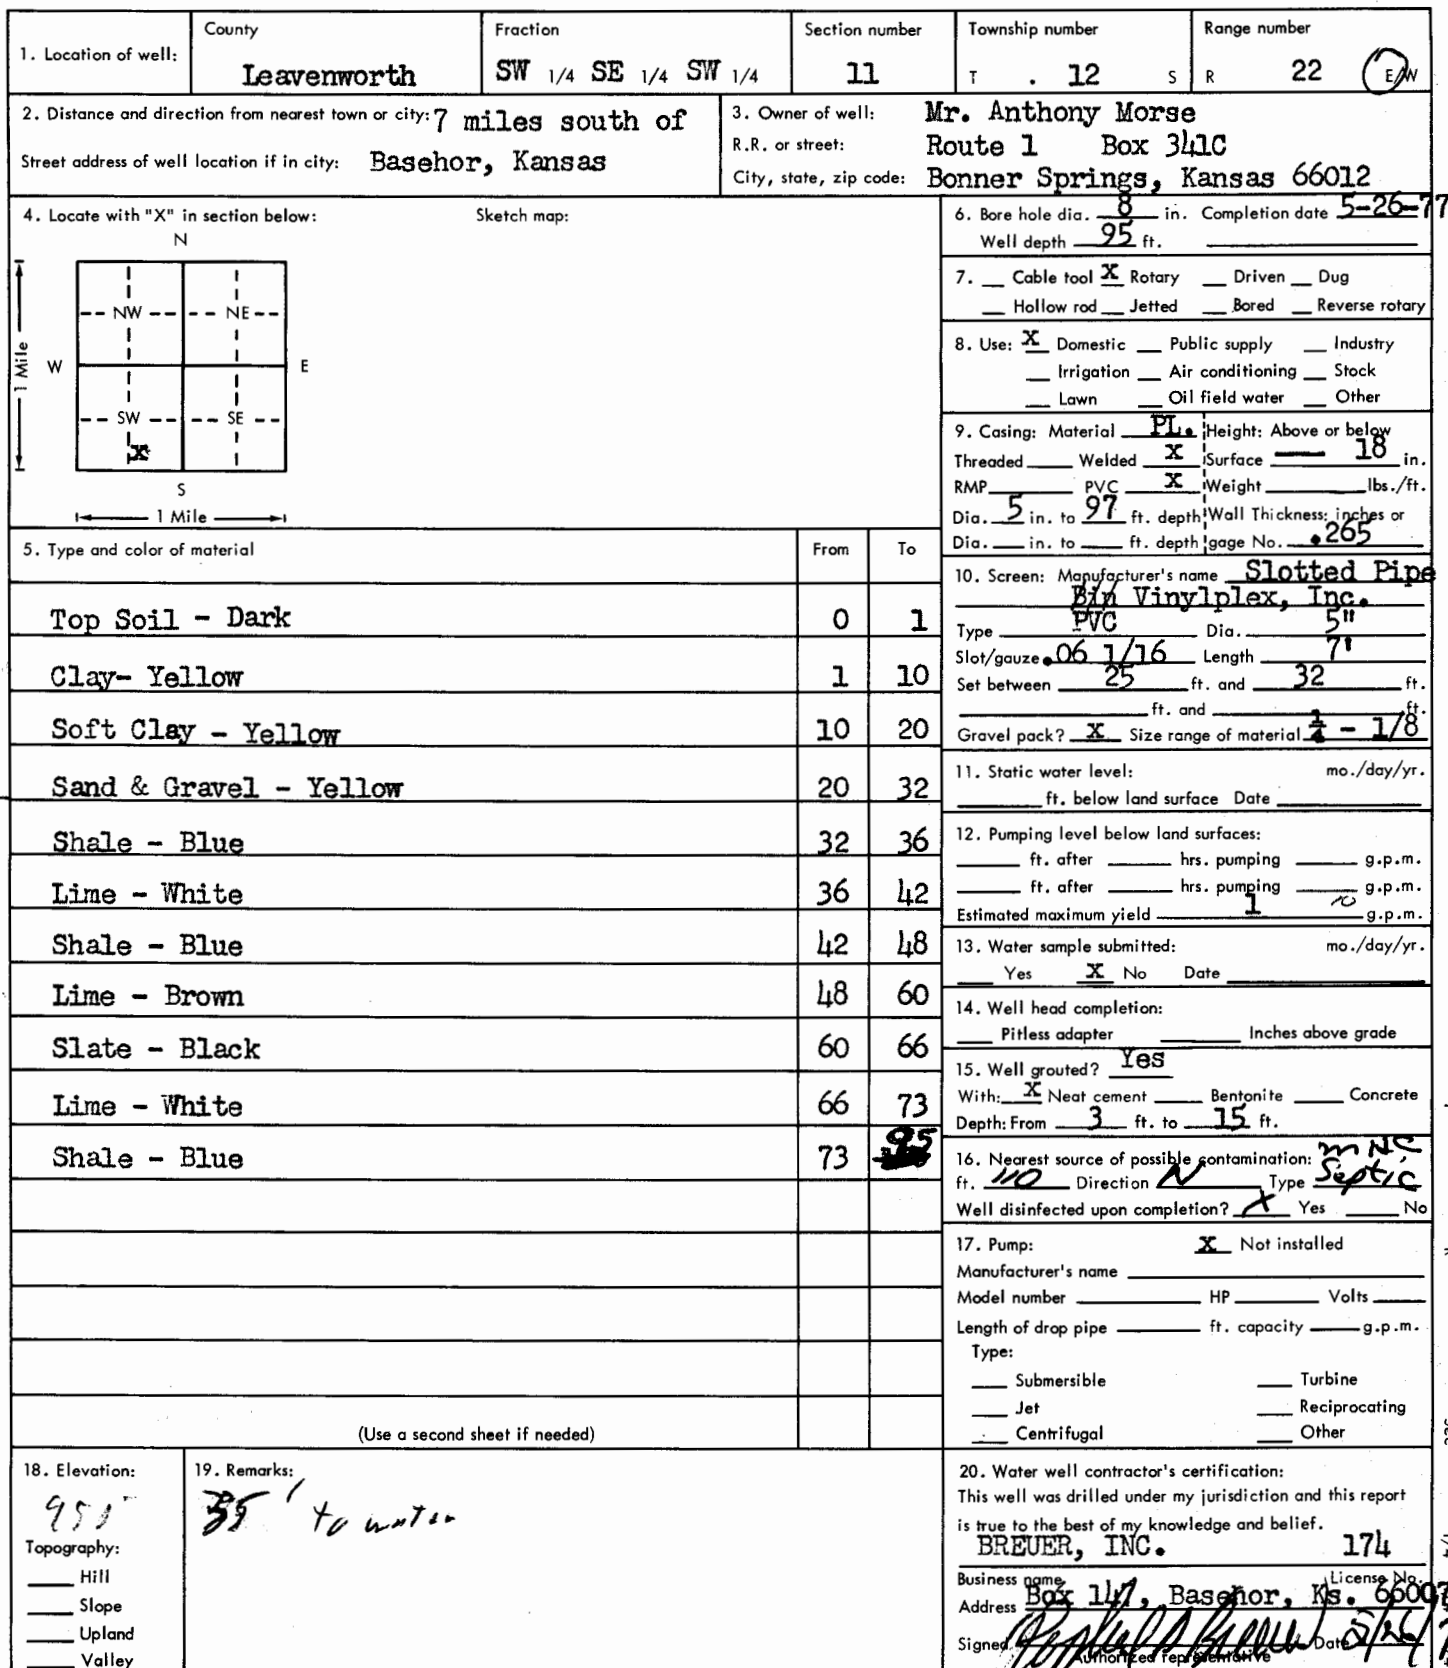 1. Location of well: County Leavenworth Fraction SW 1/4 SE 1/4 SW 1/4 Section number 11 Township number T . 12 S Range number R 22 E/W
2. Distance and direction from nearest town or city: 7 miles south of
Street address of well location if in city: Basehor, Kansas
3. Owner of well: Mr. Anthony Morse
R.R. or street: Route 1 Box 341C
City, state, zip code: Bonner Springs, Kansas 66012
4. Locate with "X" in section below: Sketch map:
N
NW NE
W E
1 Mile
SW SE
X
S
1 Mile
5. Type and color of material From To
Top Soil - Dark 0 1
Clay- Yellow 1 10
Soft Clay - Yellow 10 20
Sand & Gravel - Yellow 20 32
Shale - Blue 32 36
Lime - White 36 42
Shale - Blue 42 48
Lime - Brown 48 60
Slate - Black 60 66
Lime - White 66 73
Shale - Blue 73 95
(Use a second sheet if needed)
6. Bore hole dia. 8 in. Completion date 5-26-77
Well depth 95 ft.
7. Cable tool X Rotary Driven Dug
Hollow rod Jetted Bored Reverse rotary
8. Use: X Domestic Public supply Industry
Irrigation Air conditioning Stock
Lawn Oil field water Other
9. Casing: Material PL. Height: Above or below
Threaded Welded X Surface 18 in.
RMP PVC X Weight lbs./ft.
Dia. 5 in. to 97 ft. depth Wall Thickness: inches or
Dia. in. to ft. depth gage No. .265
10. Screen: Manufacturer's name Slotted Pipe
Vinylplex, Inc.
Type PVC Dia. 5"
Slot/gauze .06 1/16 Length 7'
Set between 25 ft. and 32 ft.
ft. and ft.
Gravel pack? X Size range of material 1/4 - 1/8
11. Static water level: mo./day/yr.
ft. below land surface Date
12. Pumping level below land surfaces:
ft. after hrs. pumping g.p.m.
ft. after hrs. pumping g.p.m.
Estimated maximum yield 1 10 g.p.m.
13. Water sample submitted: mo./day/yr.
Yes X No Date
14. Well head completion:
Pitless adapter Inches above grade
15. Well grouted? Yes
With: X Neat cement Bentonite Concrete
Depth: From 3 ft. to 15 ft.
16. Nearest source of possible contamination:
ft. 110 Direction N Type Septic
Well disinfected upon completion? X Yes No
17. Pump: X Not installed
Manufacturer's name
Model number HP Volts
Length of drop pipe ft. capacity g.p.m.
Type:
Submersible Turbine
Jet Reciprocating
Centrifugal Other
18. Elevation:
955
Topography:
Hill
Slope
Upland
Valley
19. Remarks:
35' to water
20. Water well contractor's certification:
This well was drilled under my jurisdiction and this report
is true to the best of my knowledge and belief.
BREUER, INC. 174
Business name License No.
Address Box 147, Basehor, Ks. 66007
Signed Date 5/26/7
Authorized representative